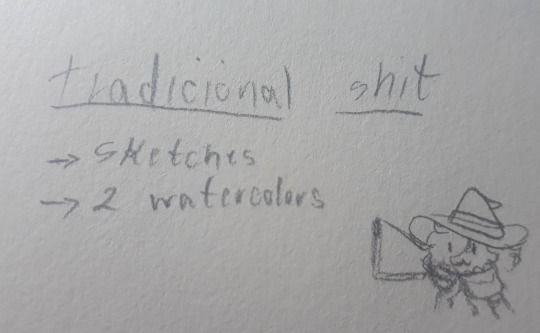 tradicional shit
→ sketches
→ 2 watercolors